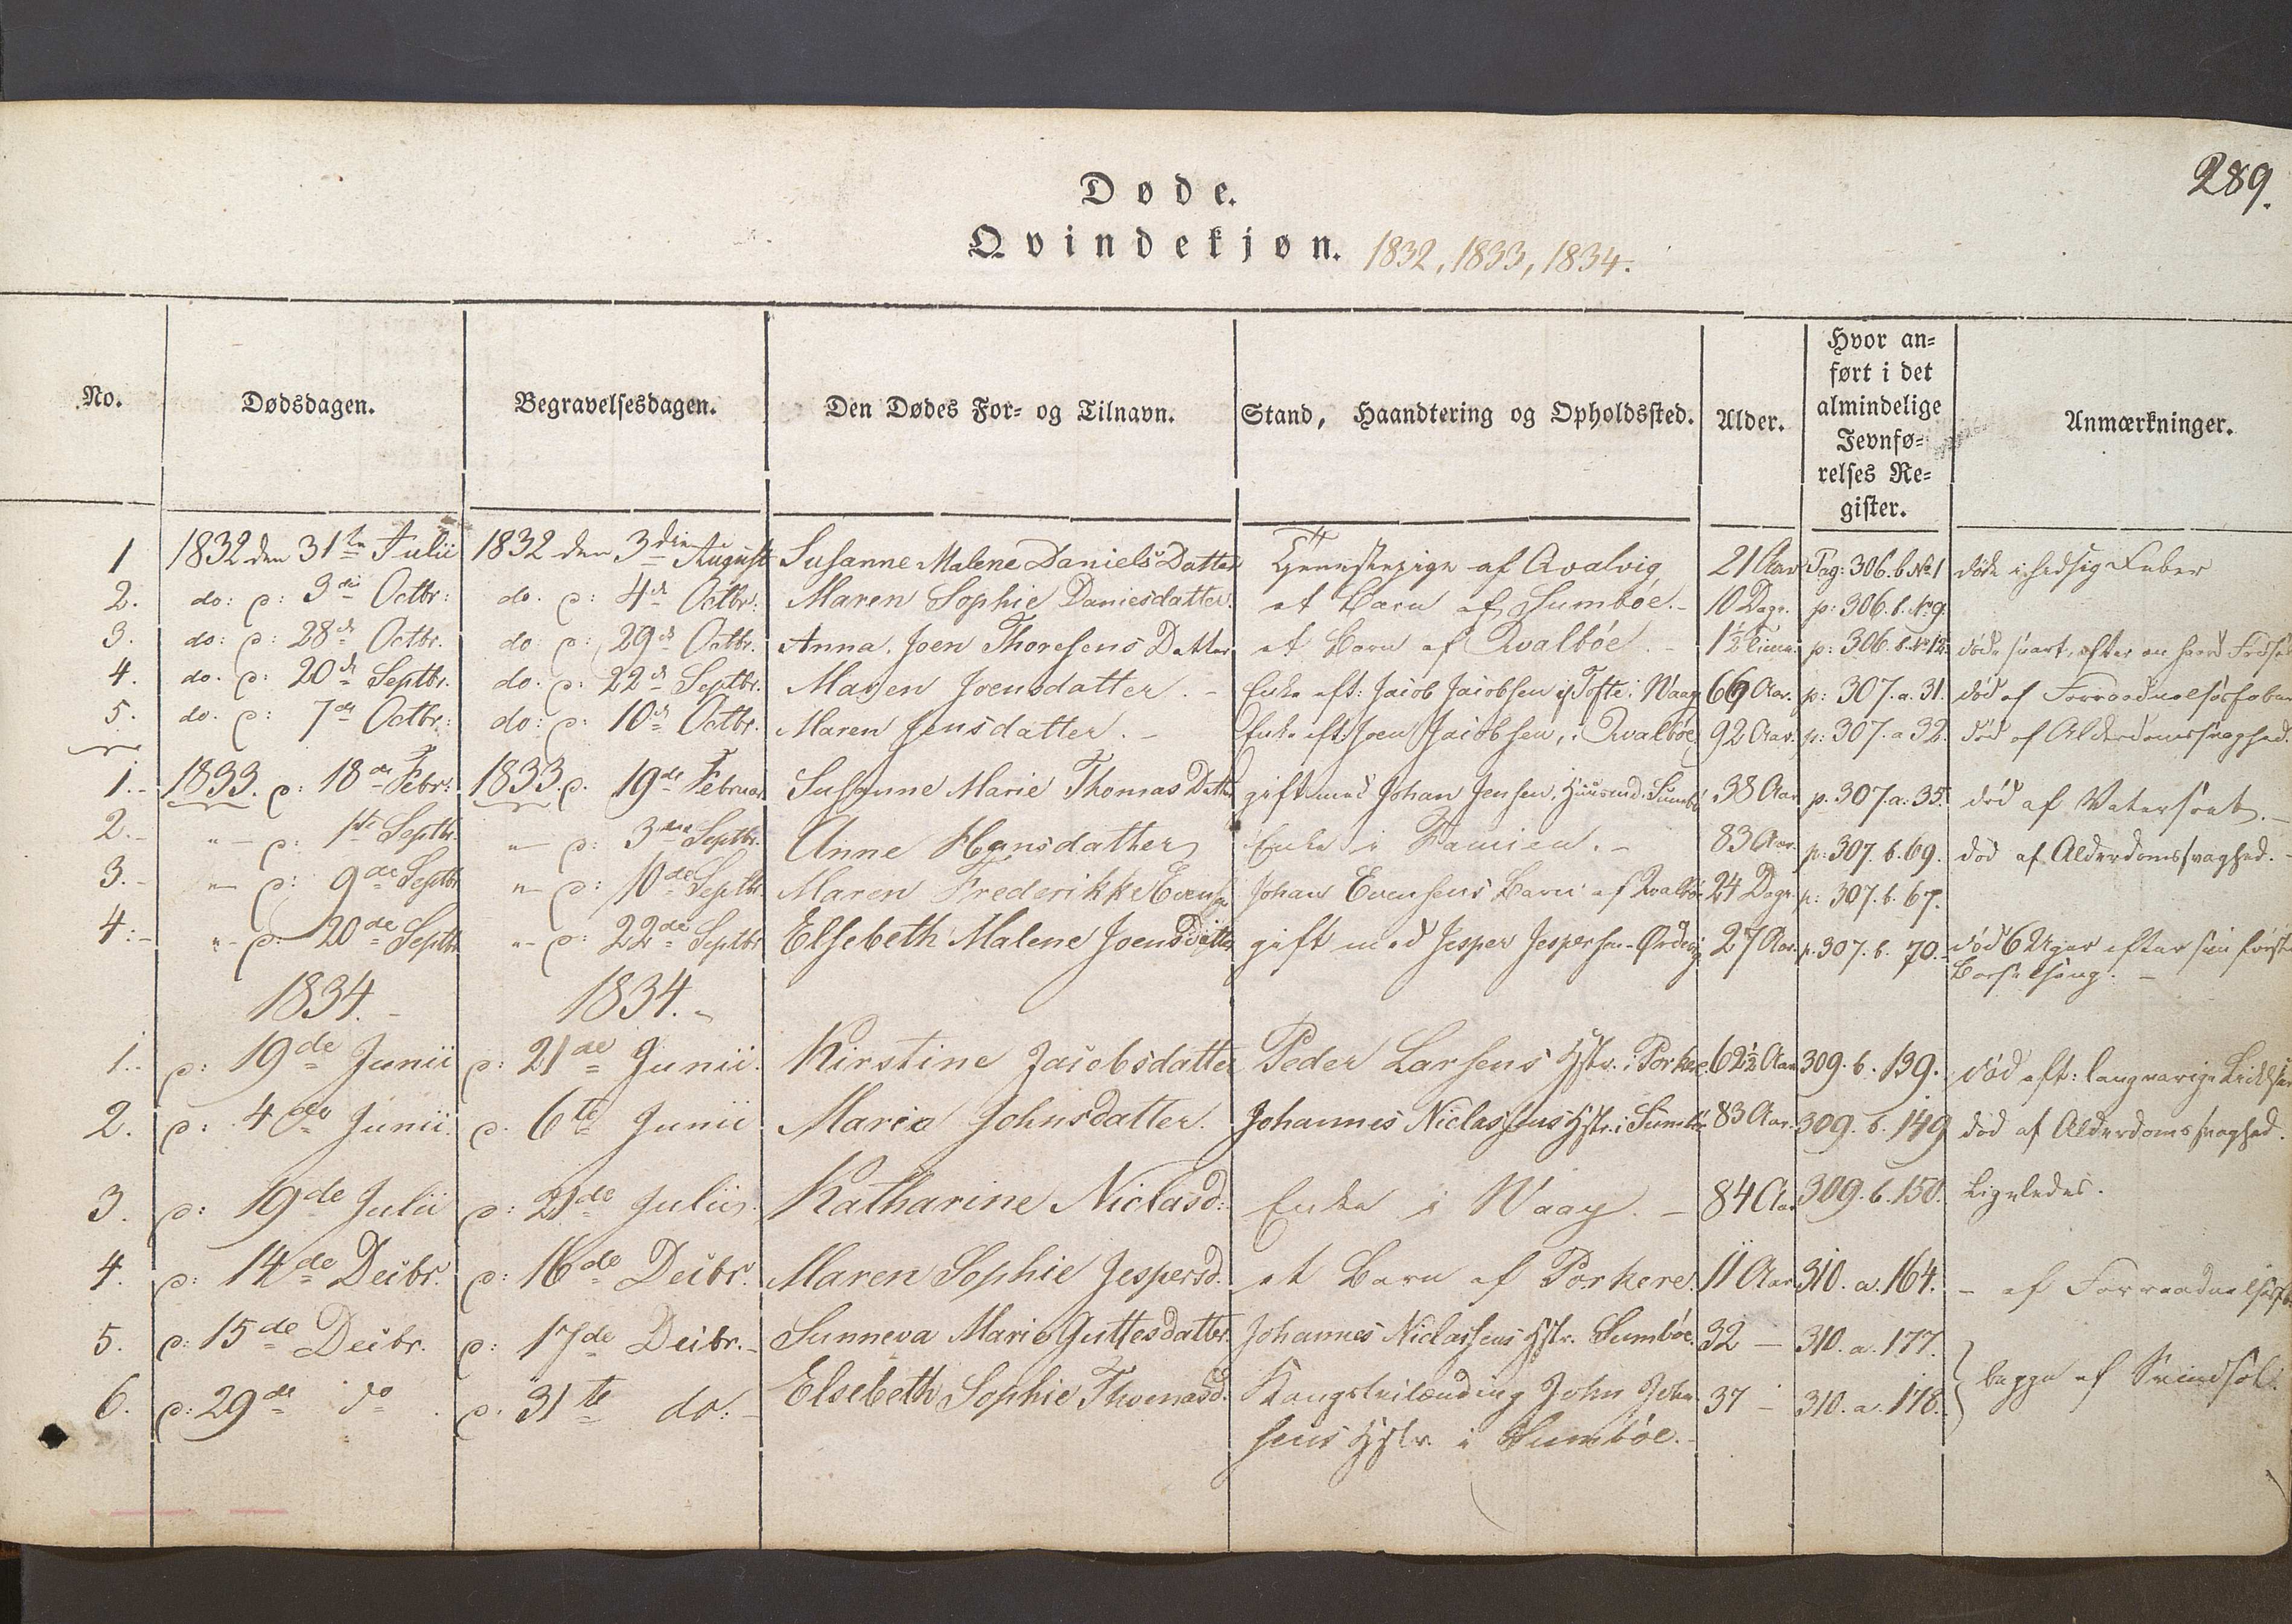 289.
Døde.
Qvindekjøn. 1832, 1833, 1834.
No. Dødsdagen. Begravelsesdagen. Den Dødes For- og Tilnavn. Stand, Haandtering og Opholdssted. Alder. Hvor an=ført i det almindelige Jevnfø=relses Re=gister. Anmærkninger.
1 1832 den 31te Julii 1832 den 3die August Susanne Malene Daniels Datter Tjenestepige af Qvalvig 21 Aar Pag: 306. b. No 1 døde i hedsig Feber
2. do: d: 3die Octbr: do. d: 4de Octbr. Maren Sophie Daniesdatter. et Barn af Sumböe. 10 Dage. p: 306. b. No 9.
3. do: d: 28de Octbr. do: d: 29de Octbr. Anna Joen Thoresens Datter et Barn af Qvalböe. 1½ Time p: 306. b. No 12. døde snart, efter en haard Fødsel
4. do. d: 20de Septbr. do. d: 22de Septbr. Maren Joensdatter. Enke eft: Jacob Jacobsen Tofte i Waag 69 Aar. p: 307. a. 31. død af Forraadnelsesfeber
5. do. d: 7de Octbr: do: d: 10de Octbr. Maren Jensdatter. Enke eft: Joen Jacobsen, i Qvalböe 92 Aar. p: 307. a 32. død af Alderdomssvaghed.
1. 1833. d: 18de Febr: 1833. d. 19de Februar Susanne Marie Thomas Datter gift med Johan Jensen, Huusmd. Sumbö 38 Aar p. 307. a. 35. død af Vatersoet.
2. " d: 1ste Septbr. " d: 3die Septbr. Anne Hansdatter Enke i Famien. 83 Aar. p: 307. b. 69. død af Alderdomssvaghed.
3. " d: 9de Septbr " d: 10de Septbr. Maren Frederikke Evens Johan Evensens Barn af Qvalböe 24 Dage p: 307. b. 67.
4: " d: 20de Septbr " d: 22de Septbr Elsebeth Malene Joensdatter gift med Jesper Jespersen Ørdevig 27 Aar. p. 307. b. 70. død 6 Uger efter sin første
Barselseng.
1834. 1834.
1. d: 19de Junii d: 21de Junii. Kirstine Jacobsdatter Peder Larsens Hstr. i Porkere. 62½ Aar 309. b. 139. død eft: langvarige Lidelser
2. d: 4de Junii. d. 6te Junii Maria Johnsdatter. Johannes Niclassens Hstr. i Sumböe 83 Aar. 309. b. 149 død af Alderdomssvaghed.
3. d: 19de Julii d: 21de Julii. Katharine Niclasd: Enke i Waag. 84 Aar 309. b. 150. Ligeledes.
4. d: 14de Decbr. d: 16de Decbr. Maren Sophie Jespersd. et Barn af Porkere. 11 Aar 310. a. 164. - af Forraadnelsesf
5. d: 15de Decbr. d: 17de Decbr. Sunneva Marie Guttesdatter. Johannes Niclassens Hstr. Sumböe. 32 - 310. a. 177.
6. d: 29de do. d. 31te do. Elsebeth Sophie Thomasd. Kongstvilending John John 37 - 310. a. 178. begge af Svindsot.
sens Hstr. i Sumböe.